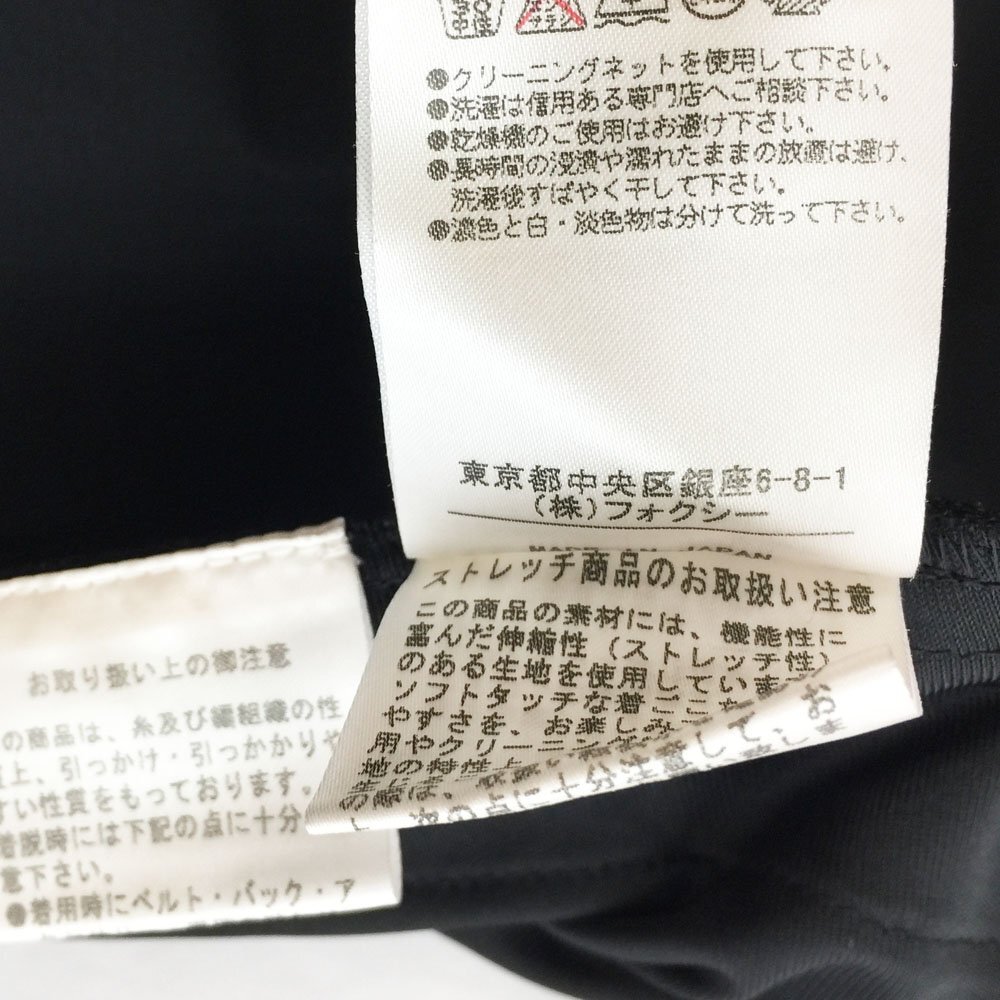 ●クリーニングネットを使用して下さい。
●洗濯は信用ある専門店へご相談下さい。
●乾燥機のご使用はお避け下さい。
●長時間の浸漬や濡れたままの放置は避け、
洗濯後すばやく干して下さい。
●濃色と白・淡色物は分けて洗って下さい。
東京都中央区銀座6-8-1
(株)フォクシー
MADE IN JAPAN
ストレッチ商品のお取扱い注意
この商品の素材には、機能性に
富んだ伸縮性(ストレッチ性)
のある生地を使用していま
ソフトタッチな着ごこ
やすさを、お楽しみ
用やクリーニング
地の特性上
の際は、
次の点に十分注意して、お
お取り扱い上の御注意
の商品は、糸及び編組織の性
上、引っかけ・引っかかりや
すい性質をもっております。
着脱時には下記の点に十分
意下さい。
●着用時にベルト・バック・ア